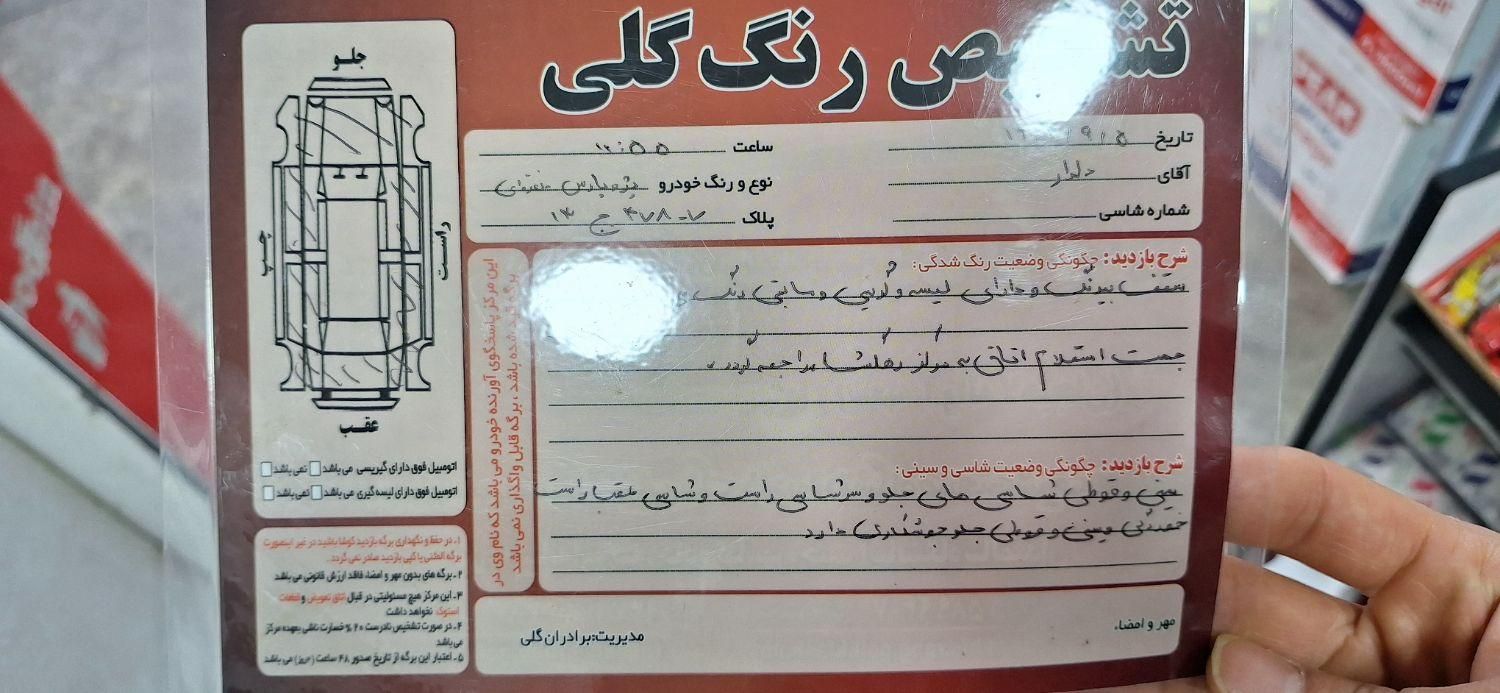 تشخیص رنگ گلی
تاریخ
ساعت ۱۲:۵۵
آقای دلدار
نوع و رنگ خودرو پژو پارس نقره‌ای
شماره شاسی
پلاک
جلو
چپ
راست
عقب
اتومبیل فوق دارای گیریسی می باشد نمی باشد
اتومبیل فوق دارای لیسه گیری می باشد نمی باشد
شرح بازدید: چگونگی وضعیت رنگ شدگی:
سقف بیرنگ و دارای لیسه و گریسی و مابقی رنگ
جهت استعلام اتاق به مرکز رهگشا مراجعه گردد.
شرح بازدید: چگونگی وضعیت شاسی و سینی:
سینی و قوطی شاسی های جلو و سرشاسی راست و شاسی عقب راست
سینی و قوطی جلو جوشکاری دارد
این مرکز پاسخگوی آورنده خودرو می باشد که نام وی در
برگه قید شده باشد، برگه قابل واگذاری نمی باشد
۱ـ در حفظ و نگهداری برگه بازدید کوشا باشید در غیر اینصورت
برگه المثنی یا کپی بازدید صادر نمی گردد.
۲ـ برگه های بدون مهر و امضاء فاقد ارزش قانونی می باشد
۳ـ این مرکز هیچ مسئولیتی در قبال اتاق تعویض و قطعات
استوک نخواهد داشت
۴ـ در صورت تشخیص نادرست ۲۰% خسارت ناشی بعهده مرکز
می باشد
۵ـ اعتبار این برگه از تاریخ صدور ۴۸ ساعت (۲روز) می باشد
مهر و امضاء
مدیریت: برادران گلی